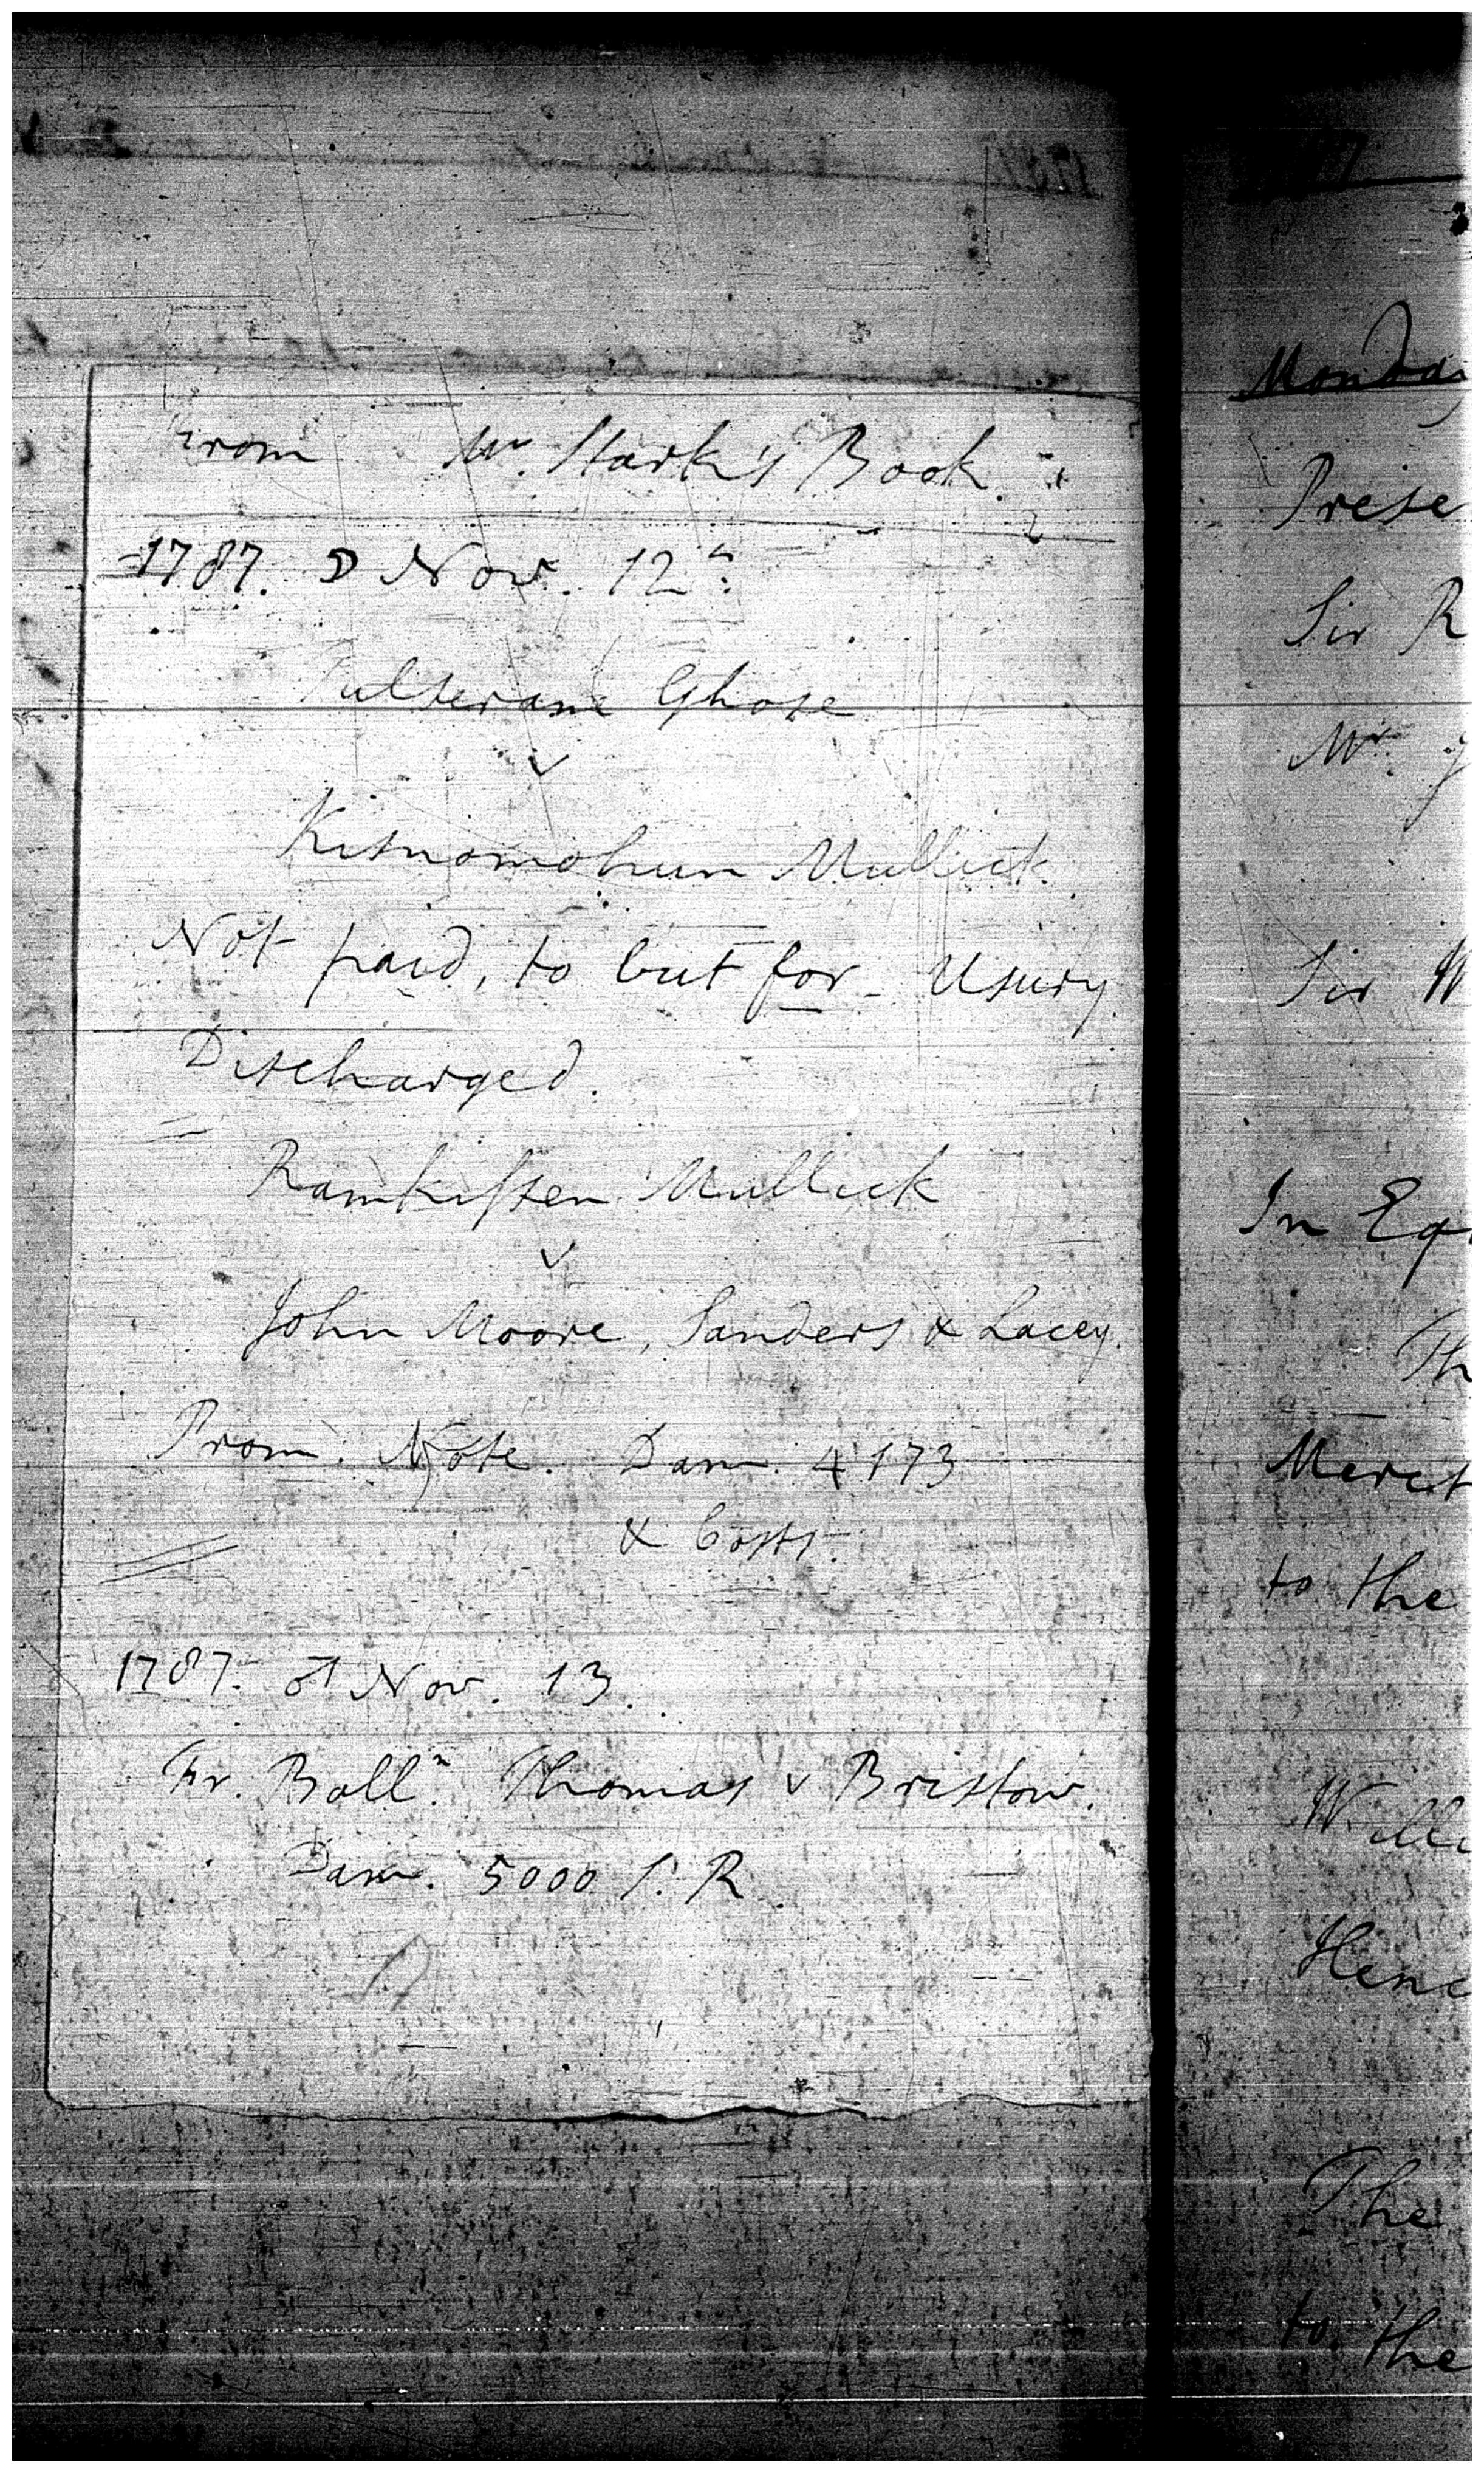 From Mr. Stark's Book.
1787. ☽ Nov. 12th.
Ghose
v
Kisnomohun Mullick
Not paid, to but for Usury
Discharged.
Ramkissen Mullick
v
John Moore, Sanders & Lacey.
Prom. Note. Dam. 4173
& Costs.
1787. ♂ Nov. 13.
Fr. Ball.n Thomas v Bristow.
Dam. 5000 S. R.
Monday
Prese
Sir R
Mr. J
Sir W
In Eq
Th
Merct
to the
Willi
Henc
The
to the